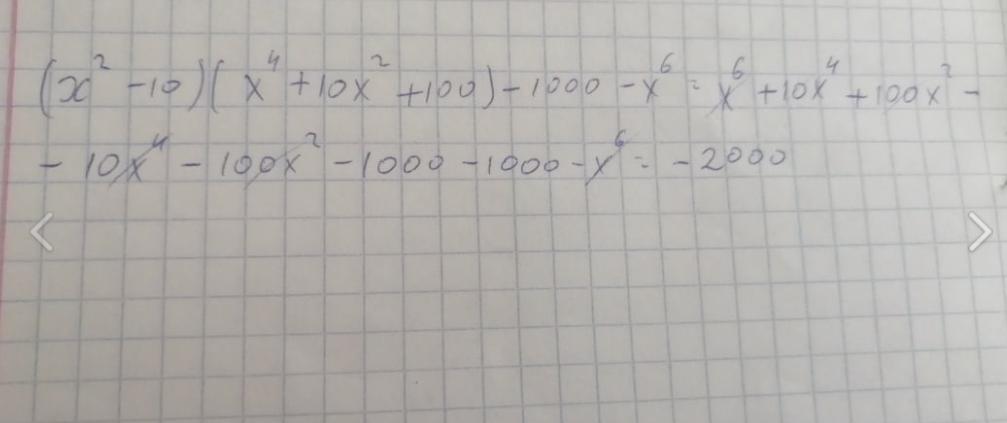 (x² -10)(x⁴ +10x² +100) -1000 -x⁶ = x⁶ +10x⁴ +100x² -
- 10x⁴ - 100x² -1000 -1000 -x⁶ = -2000